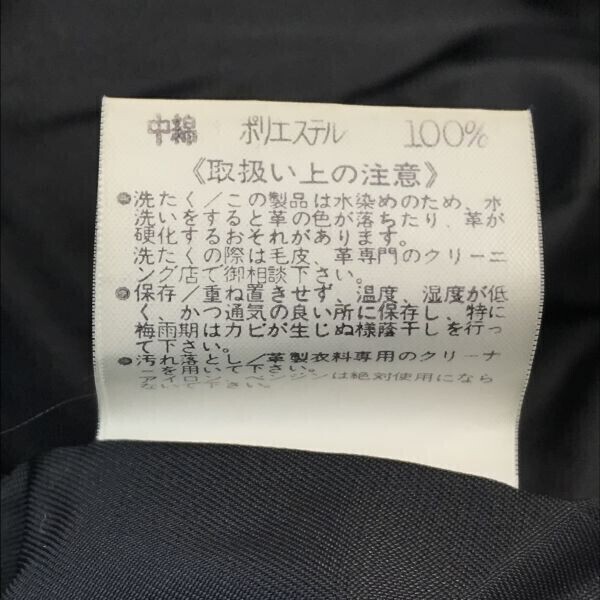 中綿 ポリエステル 100%
《取扱い上の注意》
●洗たく/この製品は水染めのため、水
洗いをすると革の色が落ちたり、革が
硬化するおそれがあります。
洗たくの際は毛皮、革専門のクリーニ
ング店で御相談下さい。
●保存/重ね置きせず、温度、湿度が低
く、かつ通気の良い所に保存し、特に
梅雨期はカビが生じぬ様蔭干しを行っ
て下さい。
●汚れ落とし/革製衣料専用のクリーナ
ーを用いて下さい。
アイロン、ベンジンは絶対使用になら
ないで下さい。